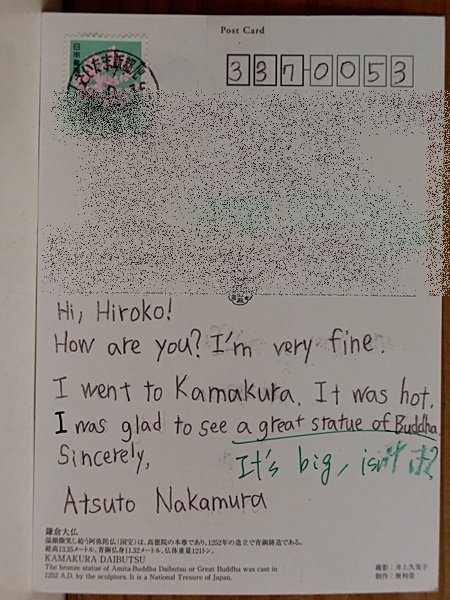 Post Card
日本郵便
さいたま新都心
337-0053
Hi, Hiroko!
How are you? I'm very fine.
I went to Kamakura. It was hot.
I was glad to see a great statue of Buddha.
Sincerely,
It's big, isn't it?
Atsuto Nakamura
鎌倉大仏
温顔微笑し給う阿弥陀仏(国宝)は、高徳院の本尊であり、1252年の造立で青銅鋳造である。
総高13.35メートル、青銅仏身11.32メートル、仏体重量121トン。
KAMAKURA DAIBUTSU
The bronze statue of Amita-Buddha Daibutsu or Great Buddha was cast in
1252 A.D. by the sculptors. It is a National Tresure of Japan.
撮影:井上久美子
制作:便利堂